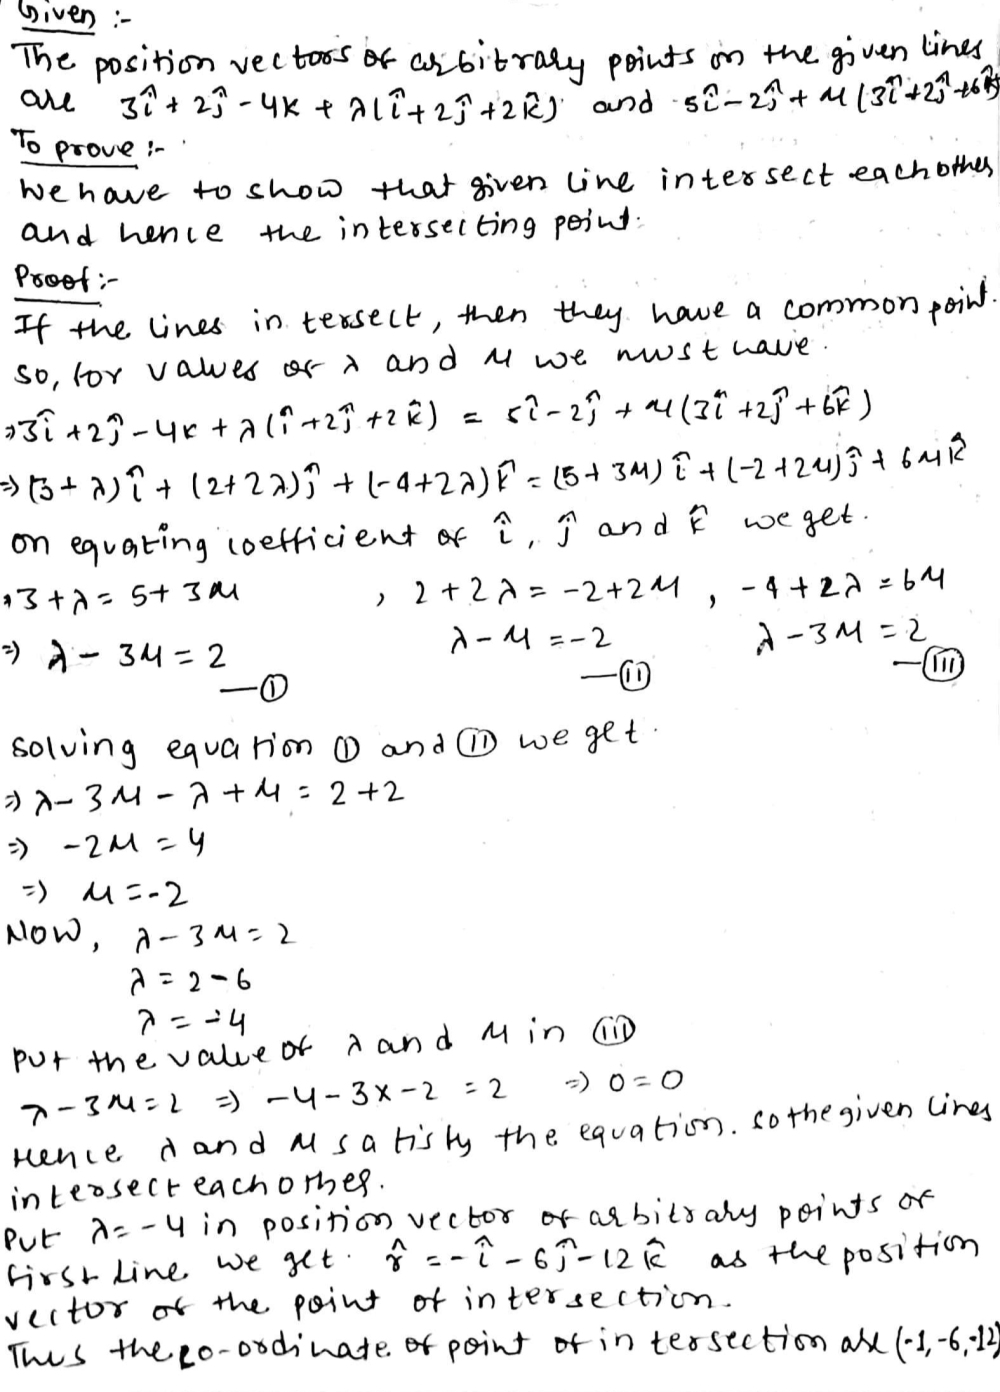 Given :-
The position vectors of arbitrary points on the given lines
are 3î + 2ĵ - 4k + λ(î + 2ĵ + 2k̂) and 5î - 2ĵ + μ(3î + 2ĵ + 6k̂)
To prove :-
We have to show that given line intersect each other
and hence the intersecting point.
Proof :-
If the lines intersect, then they have a common point.
so, for values of λ and μ we must have.
⇒ 3î + 2ĵ - 4k + λ(î + 2ĵ + 2k̂) = 5î - 2ĵ + μ(3î + 2ĵ + 6k̂)
⇒ (3 + λ)î + (2 + 2λ)ĵ + (-4 + 2λ)k̂ = (5 + 3μ)î + (-2 + 2μ)ĵ + 6μk̂
on equating coefficient of î, ĵ and k̂ we get.
⇒ 3 + λ = 5 + 3μ , 2 + 2λ = -2 + 2μ , -4 + 2λ = 6μ
⇒ λ - 3μ = 2 λ - μ = -2 λ - 3μ = 2
—(I) —(II) —(III)
Solving equation (I) and (II) we get.
⇒ λ - 3μ - λ + μ = 2 + 2
⇒ -2μ = 4
⇒ μ = -2
Now, λ - 3μ = 2
λ = 2 - 6
λ = -4
Put the value of λ and μ in (III)
λ - 3μ = 2 ⇒ -4 - 3 x -2 = 2 ⇒ 0 = 0
Hence λ and μ satisfy the equation. so the given lines
intersect each other.
Put λ = -4 in position vector of arbitrary points of
first line we get. r̂ = -î - 6ĵ - 12k̂ as the position
vector of the point of intersection.
Thus the co-ordinate of point of intersection are (-1, -6, -12)